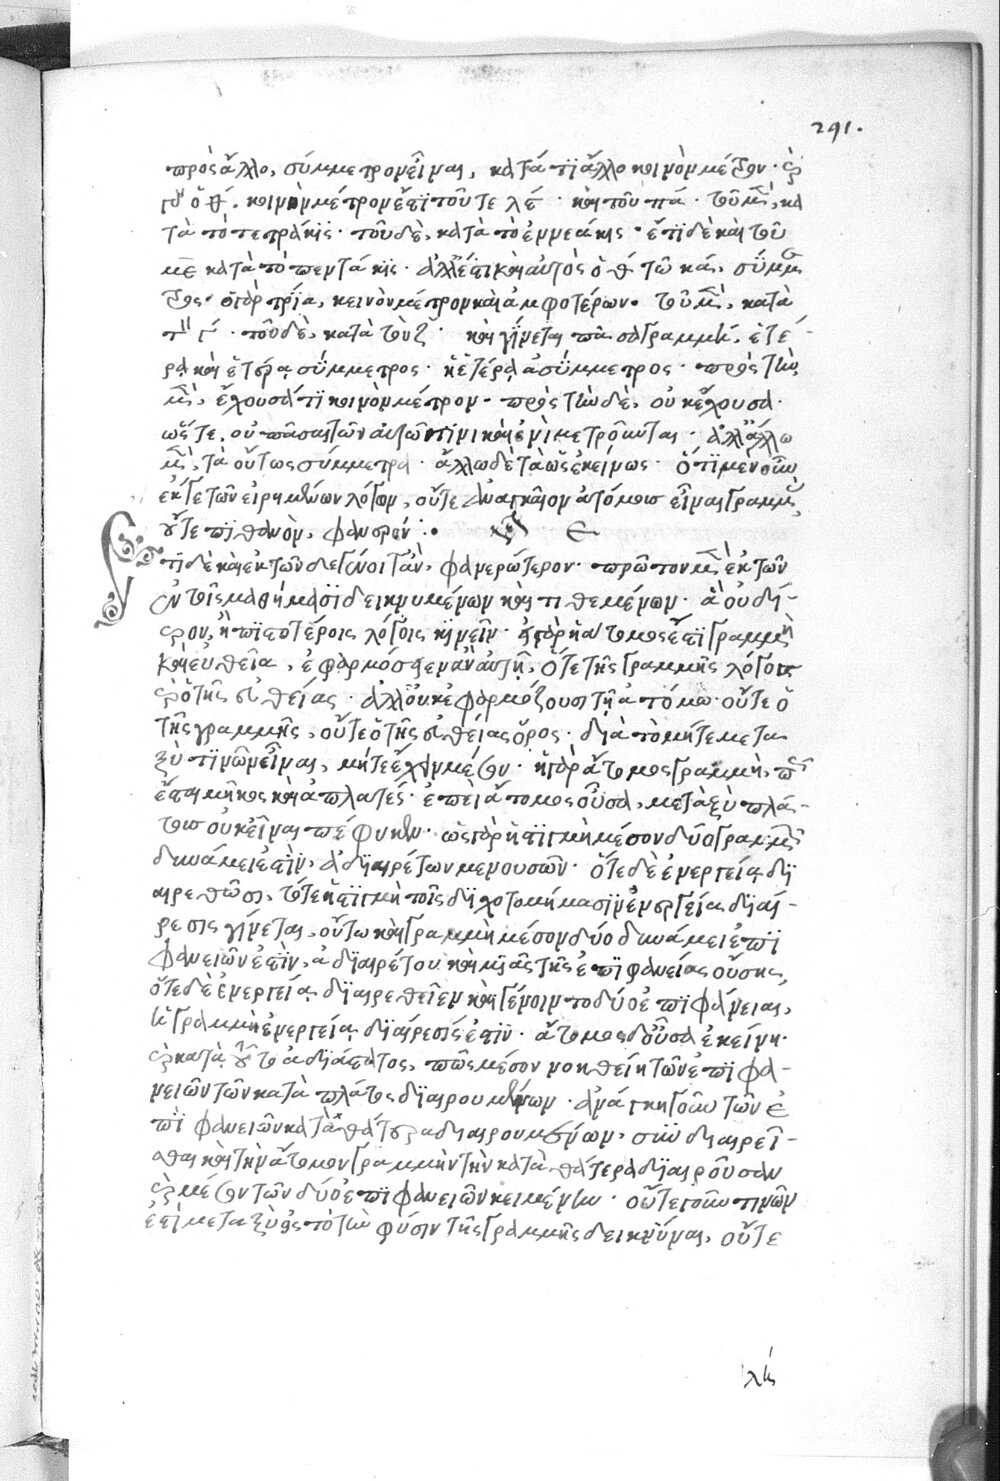 291.
πρὸς ἄλλο, σύμμετρον εἶναι, κατά τι ἄλλο κοινὸν μέτρον· ὡς
γὰρ ὁ θ´, κοινὸν μέτρον ἐστὶ τοῦ τε λϛ´· καὶ τοῦ πα´· τοῦ μὲν, κα
τὰ τὸ τετράκις· τοῦ δὲ, κατὰ τὸ ἐννεάκις· ἔτι δὲ καὶ τοῦ
με κατὰ τὸ πεντάκις· ἀλλ' ἔστι καὶ αὐτὸς ὁ θ´ τῶ κα´, σύμμε
τρος· ὁ γὰρ τρία, κοινὸν μέτρον καὶ ἀμφοτέρων· τοῦ μὲν, κατὰ
τὸν γ´· τοῦ δὲ, κατὰ τὸν ζ´· καὶ γίνεται πᾶσα γραμμὴ, ἑτέ-
ρα καὶ ἑτέρα σύμμετρος· καὶ ἑτέρα ἀσύμμετρος· πρὸς τὴν
μὲν, ἔχουσά τι κοινὸν μέτρον· πρὸς τὴν δὲ, οὐκ ἔχουσα·
ὥστε, οὐ πᾶσαι τῶν αὐτῶν τινι καὶ ἑνὶ μετροῦνται· ἀλλ' ἄλλω
μὲν, τὰ οὕτως σύμμετρα· ἄλλω δὲ τὰ ὡς ἐκείνως· ὅτι μὲν οὖν
ἔκ γε τῶν εἰρημένων λόγων, οὔτε ἀναγκαῖον ἀτόμους εἶναι γραμμὰς
οὔτε πιθανὸν, φανερόν :·
ἔτι δὲ καὶ ἐκ τῶνδε γένοιτ' ἂν, φανερώτερον· πρῶτον μὲν ἐκ τῶν
ἐν τοῖς μαθήμασι δεικνυμένων καὶ τιθεμένων· ἃ οὐ δή-
ἢ πιστοτέροις λόγοις κινεῖν· οὐ γὰρ ἡ ἄτομός ἐστι γραμμὴ
καὶ εὐθεῖα, ἐφαρμόσαιεν ἂν αὐτῇ, ὅτε τῆς γραμμῆς λόγος
ὁ τῆς εὐθείας· ἀλλ' οὐκ ἐφαρμόζουσι τῇ ἀτόμω· οὔτε ὁ
τῆς γραμμῆς, οὔτε ὁ τῆς εὐθείας ὅρος· διὰ τὸ μήτε μετα
ξὺ τινῶν εἶναι, μήτε ἔχειν μέσον· ἡ γὰρ ἄτομος γραμμὴ,
ἔσται μῆκος καὶ ἀπλατές· ἐπεὶ ἄτομος οὖσα, μεταξὺ πλά-
τους οὐκ εἶναι πέφυκεν· ὡς γὰρ ἡ στιγμὴ μέσον δύο γραμμῶν
δυνάμει ἐστὶν, ἀδιαιρέτων μενουσῶν· ὅτε δὲ ἐνεργεία δι
αιρεθῶσι, τότε ἡ στιγμὴ τοῖς διχοτομήμασιν ἐνεργεία διαί-
ρεσις γίνεται, οὕτω καὶ γραμμὴ μέσον δύο δυνάμει ἐπι
φανειῶν ἐστὶν, ἀδιαιρέτου καὶ μιᾶς τῆς ἐπιφανείας οὔσης,
ὅτε δὲ ἐνεργεία διαιρεθεῖεν καὶ γένοιντο δύο ἐπιφάνειαι,
ἡ γραμμὴ ἐνεργεία διαίρεσίς ἐστιν· ἄτομος δ' οὖσα ἐκείνη·
καὶ κατὰ τοῦτο ἀδιάστατος, πῶς μέσον νοηθείη τῶν ἐπιφα-
νειῶν τῶν κατὰ πλάτος διαιρουμένων· ἀνάγκη γοῦν τῶν ἐ
πιφανειῶν κατὰ θάτερα διαιρουμένων, συνδιαιρεῖ-
σθαι καὶ τὴν ἄτομον γραμμὴν τὴν κατὰ θάτερα διαιροῦσαν
ὡς μέσον τῶν δύο ἐπιφανειῶν κειμένην· οὔτε γοῦν τινῶν
ἐστι μεταξὺ ὡς πρὸς τὴν φύσιν τῆς γραμμῆς δείκνυναι, οὔτε